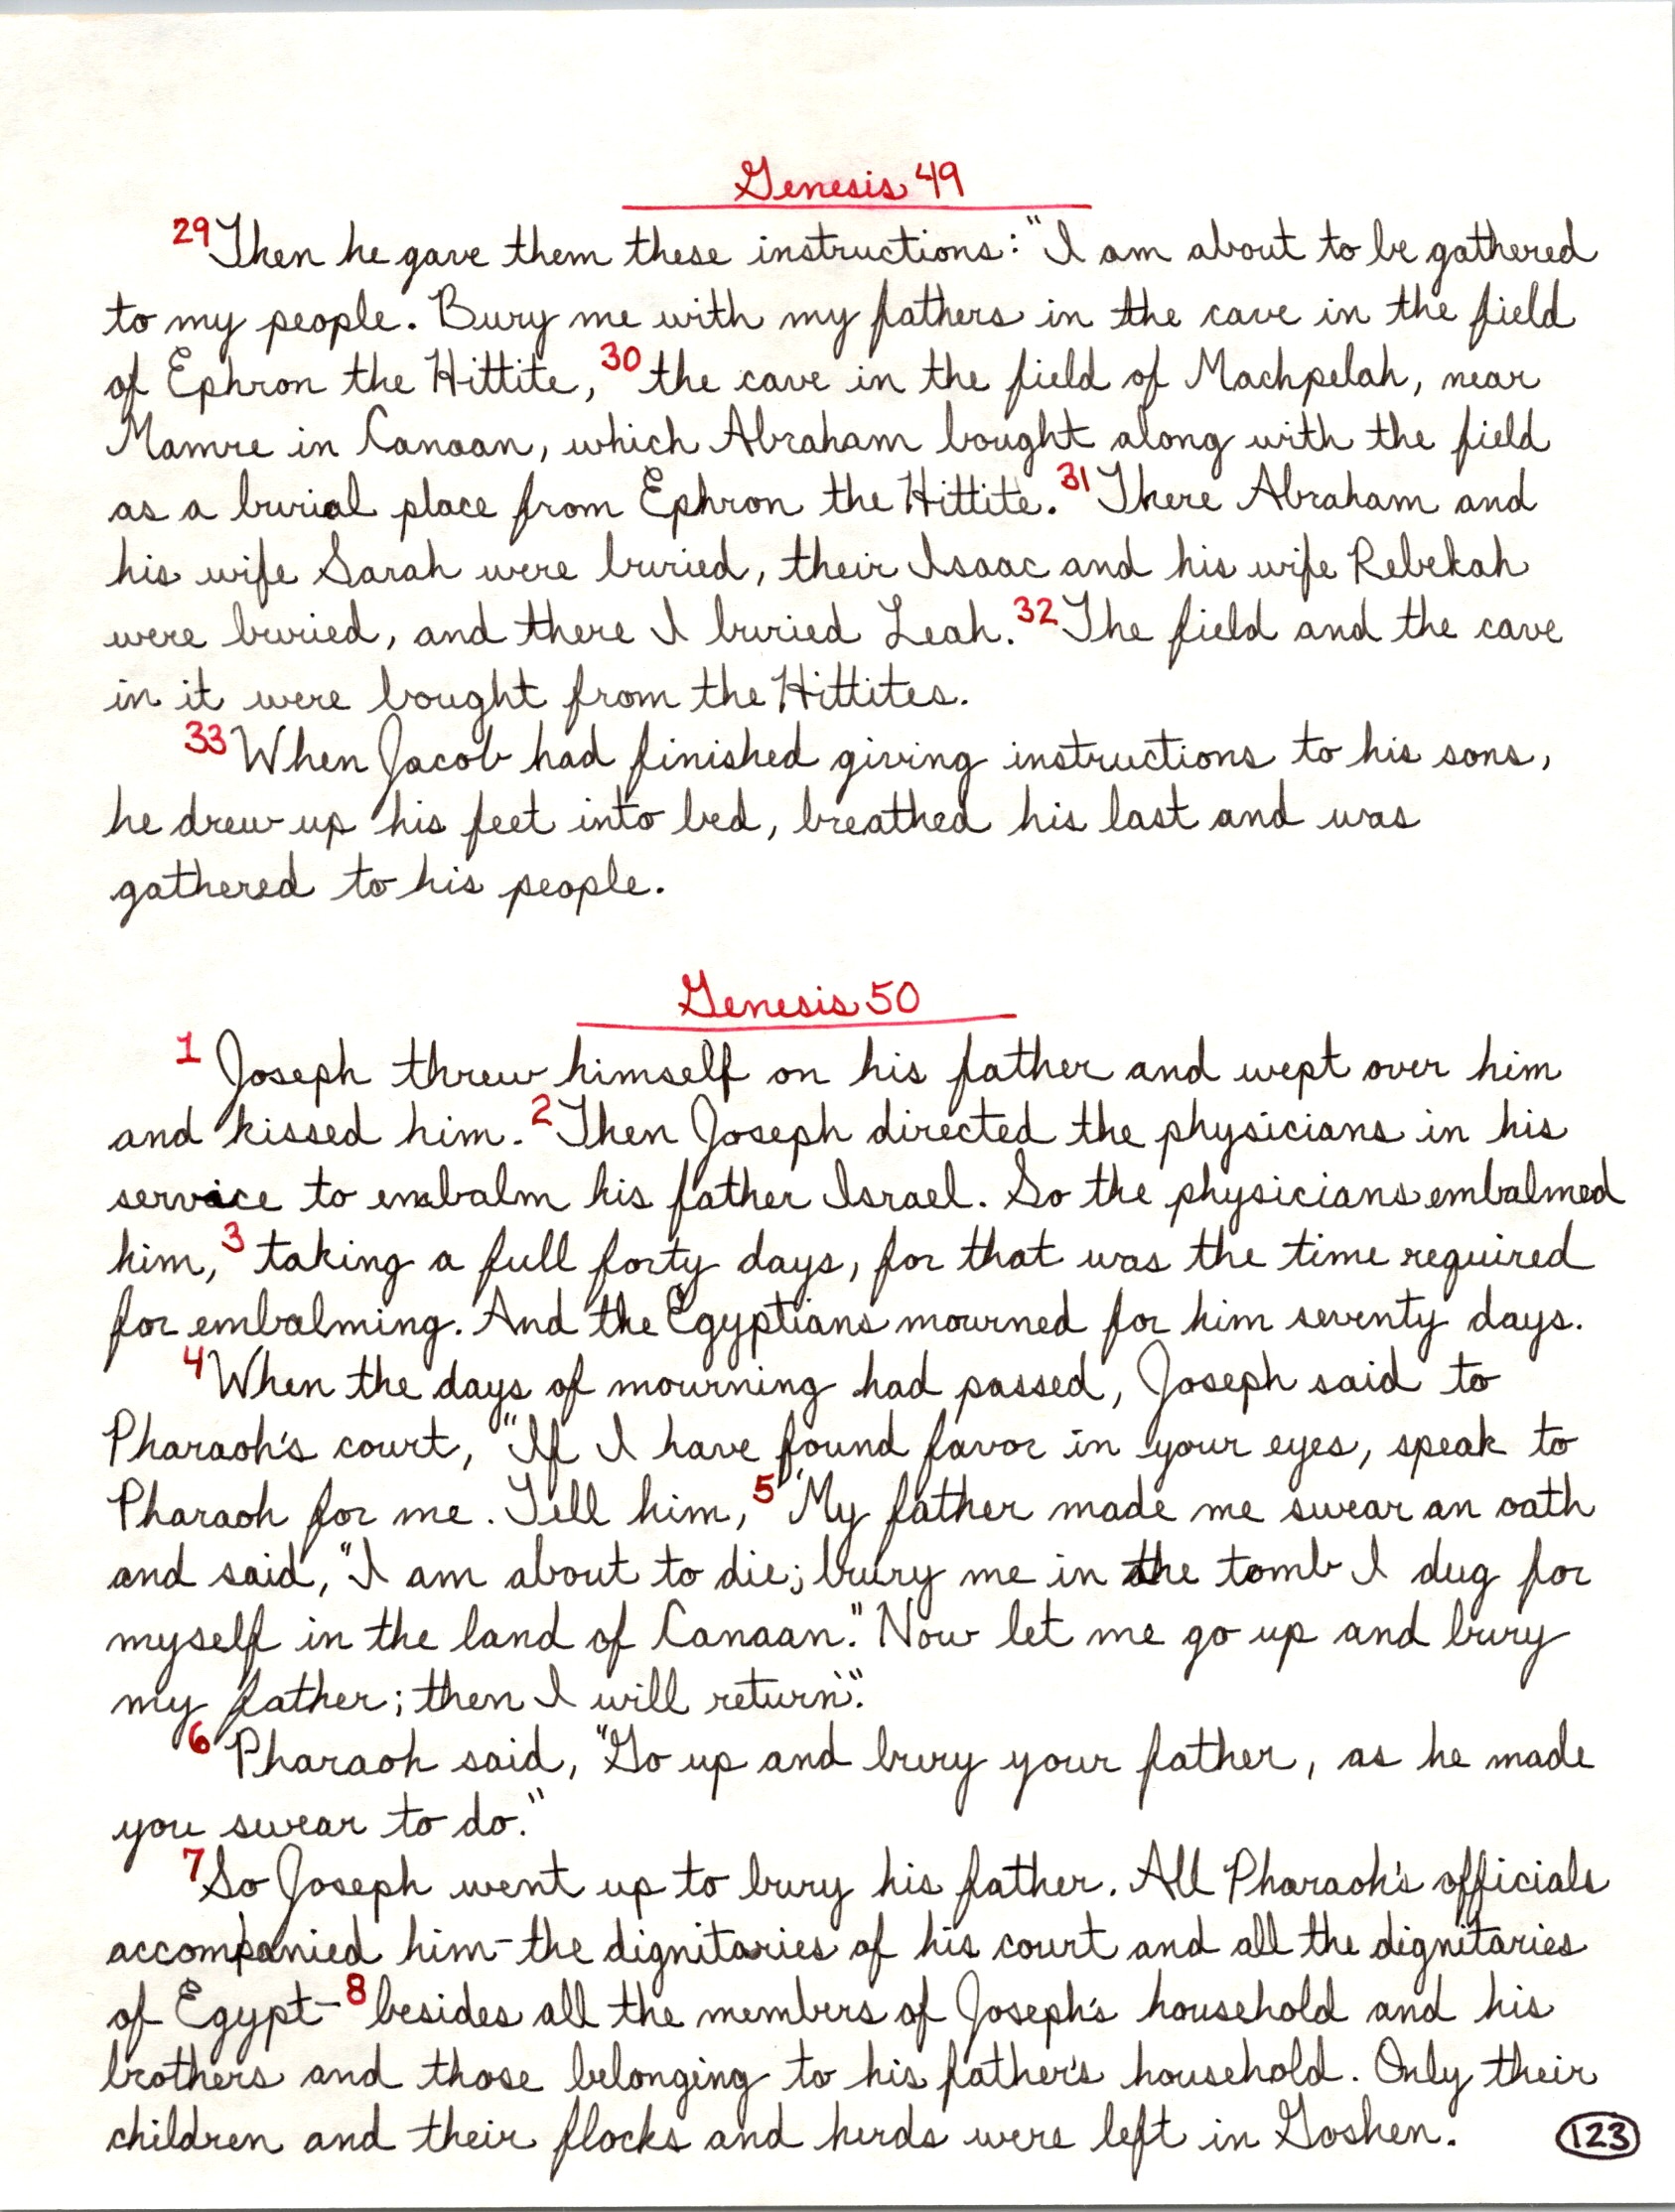 Genesis 49
29 Then he gave them these instructions: "I am about to be gathered
to my people. Bury me with my fathers in the cave in the field
of Ephron the Hittite, 30 the cave in the field of Machpelah, near
Mamre in Canaan, which Abraham bought along with the field
as a burial place from Ephron the Hittite. 31 There Abraham and
his wife Sarah were buried, their Isaac and his wife Rebekah
were buried, and there I buried Leah. 32 The field and the cave
in it were bought from the Hittites.
33 When Jacob had finished giving instructions to his sons,
he drew up his feet into bed, breathed his last and was
gathered to his people.
Genesis 50
1 Joseph threw himself on his father and wept over him
and kissed him. 2 Then Joseph directed the physicians in his
service to embalm his father Israel. So the physicians embalmed
him, 3 taking a full forty days, for that was the time required
for embalming. And the Egyptians mourned for him seventy days.
4 When the days of mourning had passed, Joseph said to
Pharaoh's court, "If I have found favor in your eyes, speak to
Pharaoh for me. Tell him, 5 'My father made me swear an oath
and said, "I am about to die; bury me in the tomb I dug for
myself in the land of Canaan." Now let me go up and bury
my father; then I will return.'"
6 Pharaoh said, "Go up and bury your father, as he made
you swear to do."
7 So Joseph went up to bury his father. All Pharaoh's officials
accompanied him-the dignitaries of his court and all the dignitaries
of Egypt- 8 besides all the members of Joseph's household and his
brothers and those belonging to his father's household. Only their
children and their flocks and herds were left in Goshen.
123